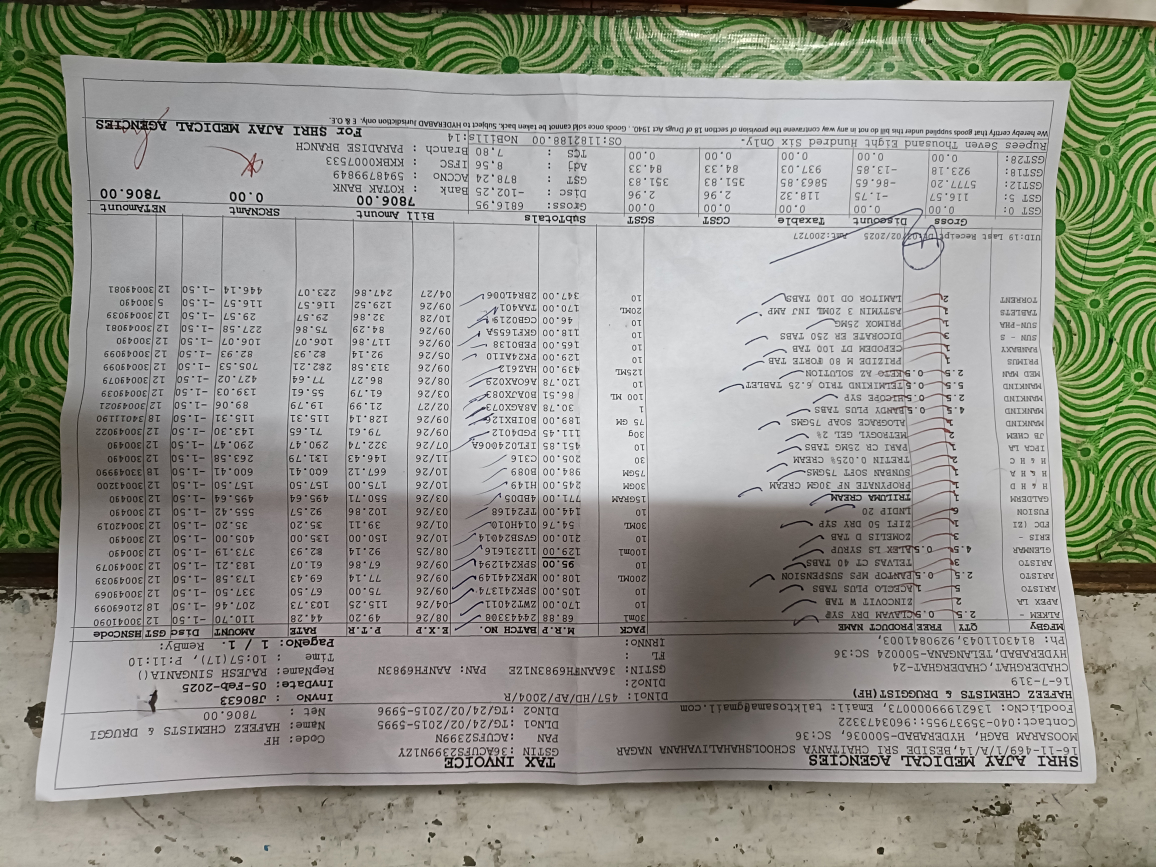 SHRI AJAY MEDICAL AGENCIES TAX INVOICE
16-11-469/1/A/14,BESIDE SRI CHAITANYA SCHOOLSHAHALIVAHANA NAGAR GSTIN :36ACUFS2399M1ZY Code: HF
MOOSARAM BAGH, HYDERABAD-500036, SC:36 PAN :ACUFS2399N Name: HAFEEZ CHEMISTS & DRUGGI
Contact:040-35937955::9603473322 DlNO1 :TG/24/02/2015-5995 Net : 7806.00
FoodLicNo: 13621999000073, Email: talktosana@gmail.com DlNO2 :TG/24/02/2015-5996
HAFEEZ CHEMISTS & DRUGGIST(HF) DlNO1: 457/HD/AP/2004/R InvNo : J80633
16-7-319 DlNO2: InvDate: 05-Feb-2025
CHADERGHAT,CHADERGHAT-24 GSTIN: 36AANHM6983N1ZE PAN: AANHM6983N RepName: RAJESH SINGANIA()
HYDERABAD,TELANGANA-500024 SC:36 FL : Time : 10:57(17), P:11:10
Ph: 8143011043,9290841003, IRNNo: PageNo: 1 / 1. RemBy:
MFGBy QTY FREE PRODUCT NAME PACK M.R.P BATCH NO. E.X.P P.T.R RATE AMOUNT Disc GST HSNCode
ALKEM - 2.5 0.5 CLAVAM DRY SYP 30ml 68.88 24443308 08/26 49.20 44.28 110.70 -1.50 12 30041090
APEX LA 2 ZINCOVIT W TAB 10 170.00 ZWT24011 04/26 115.25 103.73 207.46 -1.50 18 21069099
ARISTO 5 ACECLO PLUS TABS 10 105.00 SPKZ413174 09/26 75.00 67.50 337.50 -1.50 12 30049069
ARISTO 2.5 0.5 PANTOP MPS SUSPENSION 200ML 108.00 MPKR244149 09/26 77.14 69.43 173.58 -1.50 12 30049039
ARISTO 3 TELVAS CT 40 TABS 10 95.00 SPKZ412941 09/26 67.86 61.07 183.21 -1.50 12 30049079
GLENMAR 4.5 0.5 ALEX LS SYRUP 100ml 129.00 11231616 08/25 92.14 82.93 373.19 -1.50 12 300490
ERIS - 3 ZOMELIS D TAB 10 210.00 GVSB24014 10/26 150.00 135.00 405.00 -1.50 12 300490
FDC (ZI 1 ZIFI 50 DRY SYP 30ML 54.76 014H010 01/26 39.11 35.20 35.20 -1.50 12 30042019
FUSION 6 LNDIP 20 10 144.00 TF24168 03/26 102.86 92.57 555.42 -1.50 12 300490
GALDERM 1 TRILUMA CREAM 15GRAM 771.00 4BD05 03/26 550.71 495.64 495.64 -1.50 12 300490
H & H D 1 PROPYNATE NF 30GM CREAM 10 245.00 H149 10/26 175.00 157.50 157.50 -1.50 12 30043200
H & H A 1 SUNBAN SOFT 75GMS 75GM 984.00 B089 10/26 667.12 600.41 600.41 -1.50 18 33049990
H & H C 2 TRETIN 0.025% CREAM 30 205.00 C316 11/26 146.43 131.79 263.58 -1.50 12 300490
IPCA LA 1 PARI CR 25MG TABS 10 451.85 IFL024006A 07/26 322.74 290.47 290.47 -1.50 12 300490
JB CHEM 2 METROGYL GEL 2% 30g 111.45 PGD4012 09/26 79.61 71.65 143.30 -1.50 12 30049022
MANKIND 1 ALOGRACE SOAP 75GMS 75 GM 189.00 BOTRX126 09/26 128.14 115.31 115.31 -1.50 18 34011190
MANKIND 4.5 0.5 BANDY PLUS TABS 1 30.78 A8AGX073 02/27 21.99 19.79 89.06 -1.50 12 30049021
MANKIND 2.5 0.5 HICOPE SYP 100 ML 86.51 BOAJX083 03/26 61.79 55.61 139.03 -1.50 12 30049039
MANKIND 5.5 0.5 TELMIKIND TRIO 6.25 TABLET 10 120.78 A6OAX029 08/26 86.27 77.64 427.02 -1.50 12 30049079
MED MAN 2.5 0.5 KETO AZ SOLUTION 125ML 439.00 HAZ612 03/26 313.58 282.21 705.53 -1.50 12 30049099
PRIMUS 1 PRIZIDE M 80 FORTE TAB 10 129.00 PK24A110 05/26 92.14 82.93 82.93 -1.50 12 30049099
RANBAXY 1 CEPODEM DT 100 TAB 10 165.00 PEB0138 09/26 117.86 106.07 106.07 -1.50 12 300490
SUN - S 3 DICORATE ER 250 TABS 10 118.00 GKF1695A 09/26 84.29 75.86 227.58 -1.50 12 30049081
SUN-PHA 1 PRIMOX 25MG 10 46.00 CGB0219 10/28 32.86 29.57 29.57 -1.50 12 30049039
TABLETS 1 ASTYMIN 3 20ML INJ AMP 20ML 170.00 TAA401 09/26 129.52 116.57 116.57 -1.50 5 300490
TORRENT 2 LAMITOR OD 100 TABS 10 347.00 2BR4L006 04/27 247.86 223.07 446.14 -1.50 12 30049081
UID:19 Last Receipt Dt:03/02/2025 Amt:200727
Gross Discount Taxable CGST SGST SubTotals Bill Amount SRCNAmt NETAmount
GST 0: 0.00 0.00 0.00 0.00 0.00 Gross: 6816.95 7806.00 0.00 7806.00
GST 5: 116.57 -1.75 118.32 2.96 2.96 Disc : -102.25 Bank : KOTAK BANK
GST12: 5777.20 -86.65 5863.85 351.83 351.83 GST : 878.24 ACCNO : 5948799849
GST18: 923.18 -13.85 937.03 84.33 84.33 Adj : 8.56 IFSC : KKBK0007533
GST28: 0.00 0.00 0.00 0.00 0.00 TCS : 7.80 Branch : PARADISE BRANCH
Rupees Seven Thousand Eight Hundred Six Only. OS:1182188.00 NoBIlls:14
We hereby certify that goods supplied under this bill do not in any way contravene the provision of section 18 of Drugs Act 1940 . Goods once sold cannot be taken back. Subject to HYDERABAD Jurisdiction only. E & O.E
For SHRI AJAY MEDICAL AGENCIES